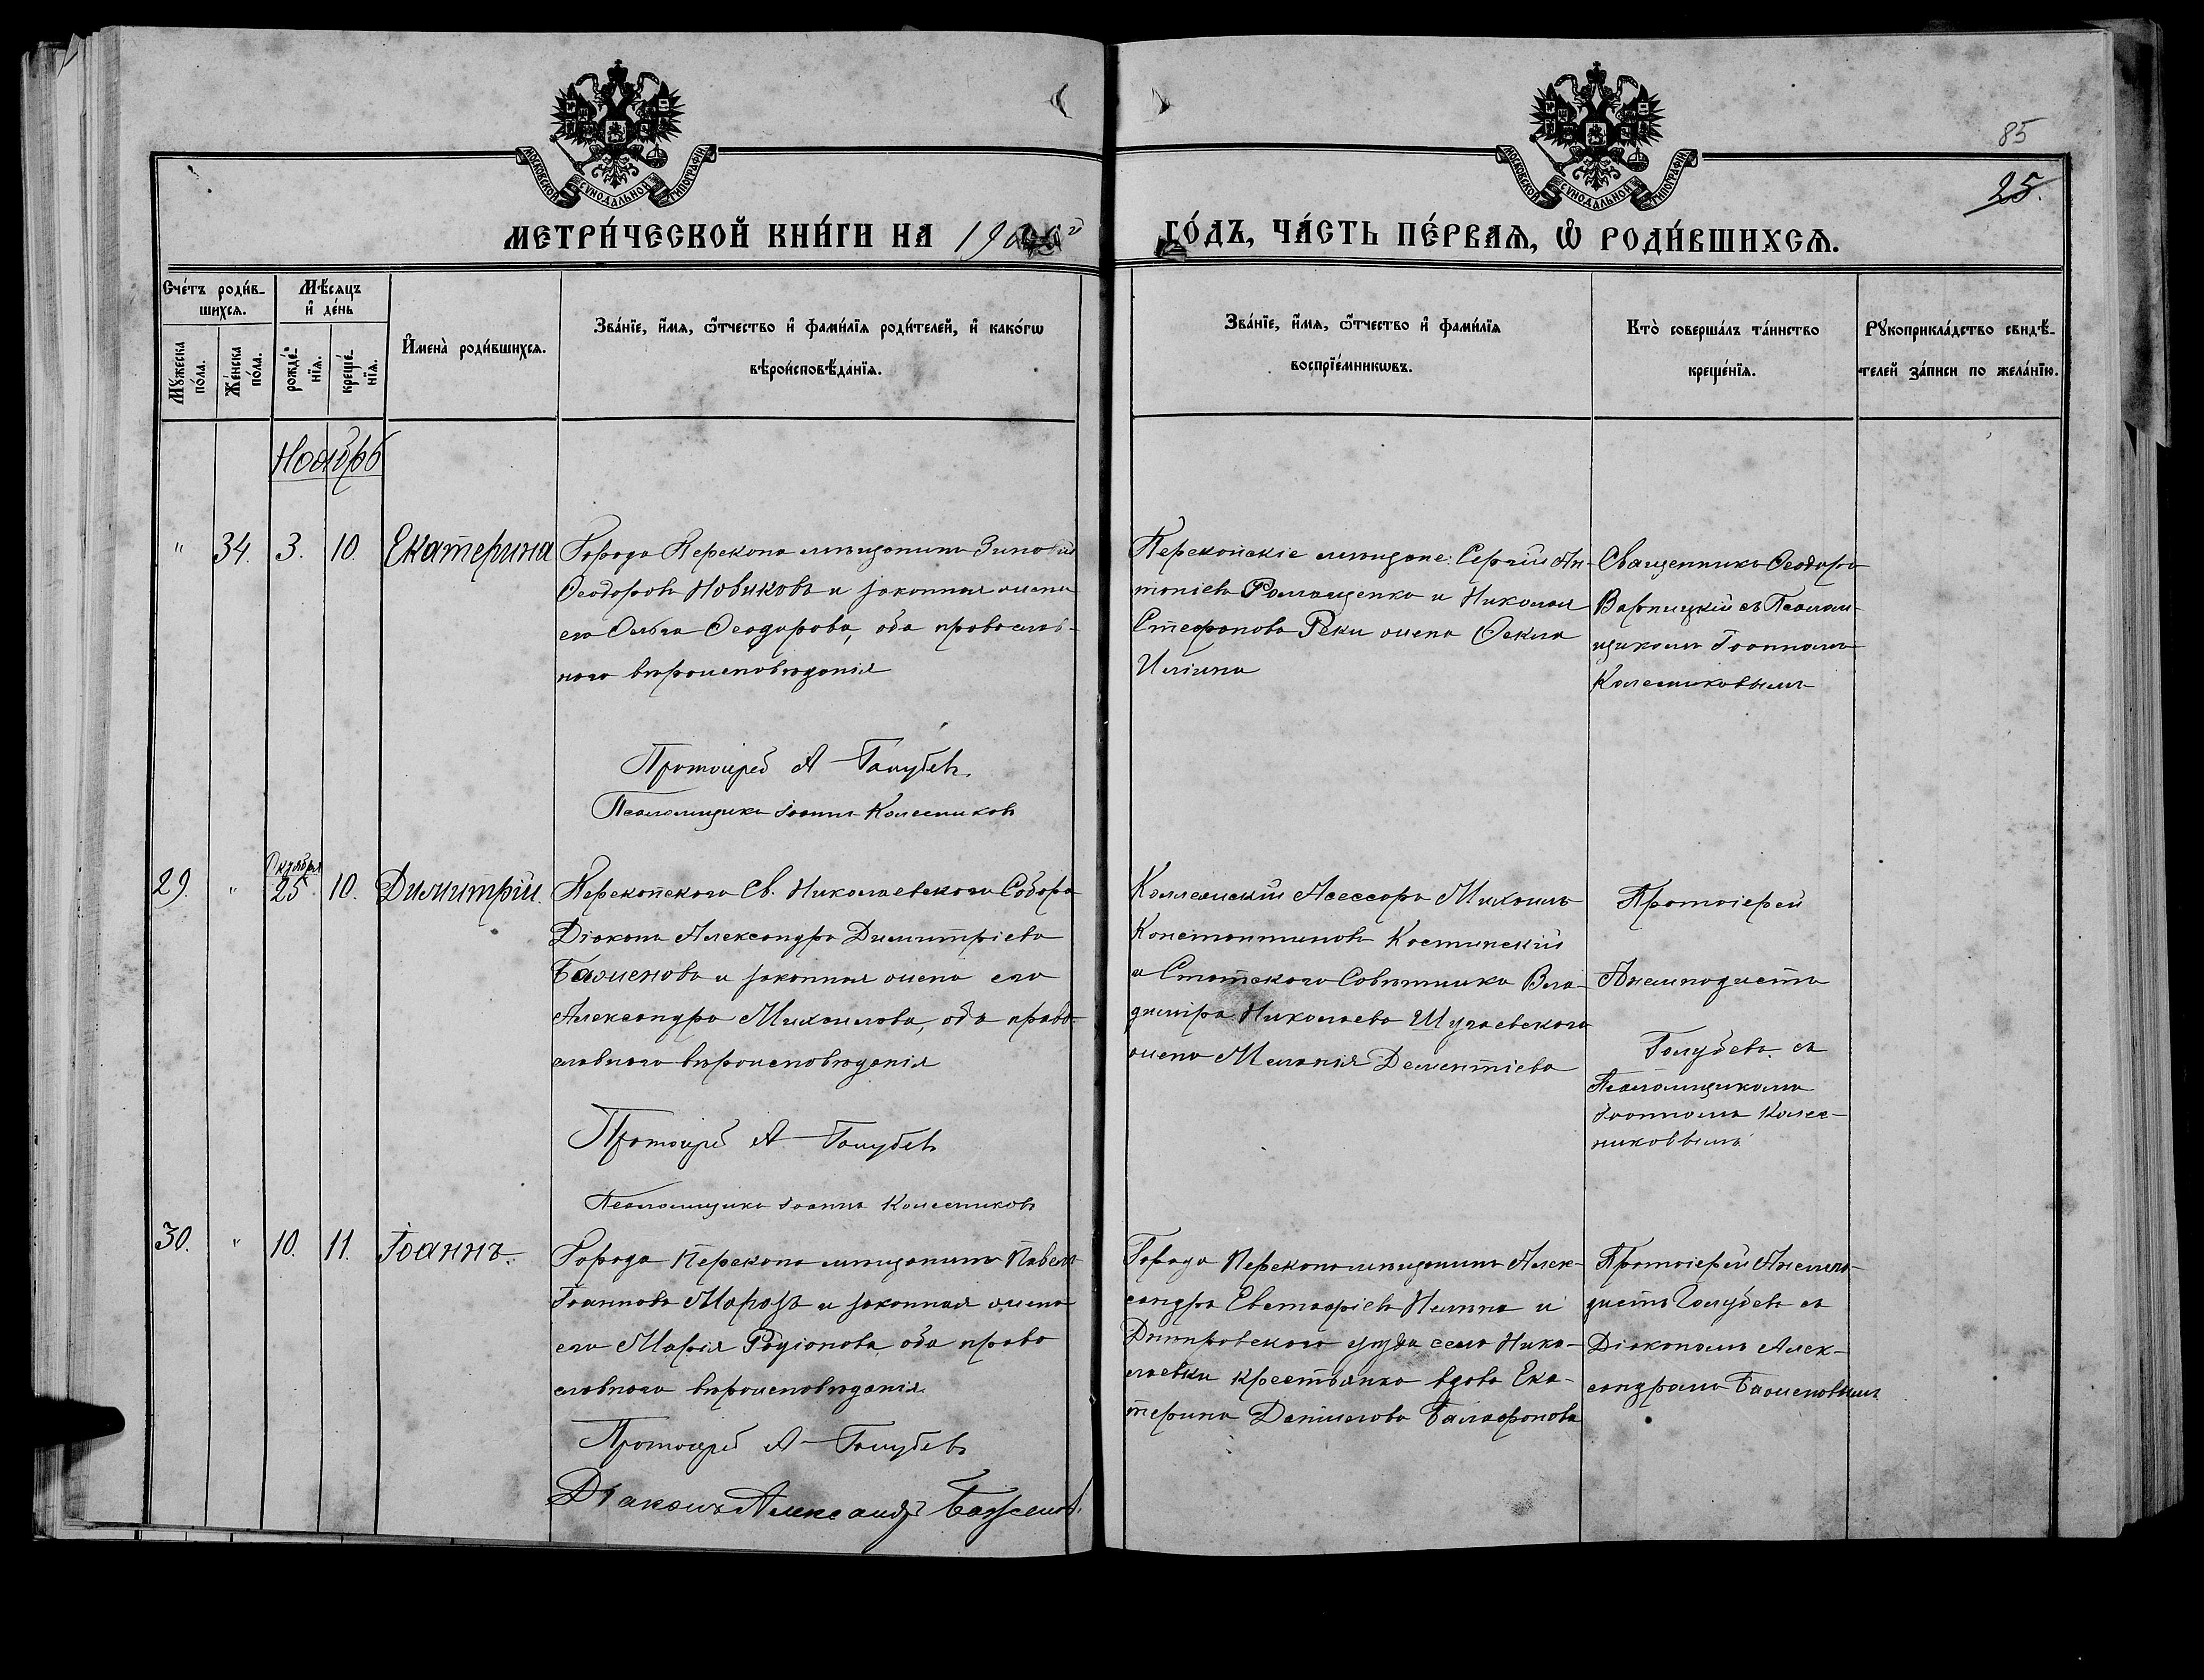 85
25.
МОСКОВСКОЙ СѴНОДАЛЬНОЙ ТИПОГРАФІИ
МОСКОВСКОЙ СѴНОДАЛЬНОЙ ТИПОГРАФІИ
МЕТРИ́ЧЕСКОЙ КНИ́ГИ НА 190
ГО́ДЪ, ЧА́СТЬ ПЕ́РВАѦ, Ѡ҆ РОДИ́ВШИХСѦ.
Счётъ роди́в-
шихсѧ.
Мꙋ́жеска по́ла.
Же́нска по́ла.
Мѣ́сѧцъ и҆ де́нь
рожде́-нїѧ.
креще́-нїѧ.
И҆мена̀ роди́вшихсѧ.
Зва́нїе, и҆́мѧ, ѻ҆́тчество и҆ фами́лїѧ роди́телей, и҆ како́гѡ
вѣроисповѣ́данїѧ.
Зва́нїе, и҆́мѧ, ѻ҆́тчество и҆ фами́лїѧ
воспрїе́мникѡвъ.
Кто̀ соверша́лъ та́инство
креще́нїѧ.
Рꙋкоприкла́дство свидѣ́-
телей за́писи по жела́нїю.
Ноябрь
" 34. 3. 10. Екатерина
Города Перекопа мѣщанинъ Зиновій
Ѳеодоровъ Новиковъ и законная жена
его Ольга Ѳеодорова, оба православ-
наго вѣроисповѣданія
Протоіерей А Голубевъ
Псаломщикъ Іоаннъ Колесниковъ
Перекопскіе мѣщане: Сергій Ан-
тоніевъ Ромащенко и Николая
Стефанова Реки жена Ѳекла
Иліина
Священникъ Ѳеодоръ
Варницкій съ Псалом-
щикомъ Іоанномъ
Колесниковымъ
29. " Октября 25. 10. Димитрій.
Перекопскаго Св. Николаевскаго Собора
Діаконъ Александръ Димитріевъ
Баженовъ и законная жена его
Александра Михаилова, оба право-
славнаго вѣроисповѣданія
Протоіерей А Голубевъ
Псаломщикъ Іоаннъ Колесниковъ
Коллежскій Ассесоръ Михаилъ
Константиновъ Костинскій
и Статскаго Совѣтника Вла-
диміра Николаева Шугаевскаго
жена Меланія Дементіева
Протоіерей
Анемподистъ
Голубевъ съ
Псаломщикомъ
Іоанномъ Колес-
никовымъ
30. " 10. 11. Іоаннъ.
Города Перекопа мѣщанинъ Павелъ
Іоанновъ Морозъ и законная жена
его Марія Родіонова, оба право
славнаго вѣроисповѣданія
Протоіерей А Голубевъ
Діаконъ Александръ Баженовъ.
Города Перекопа мѣщанинъ Алек-
сандръ Евстафіевъ и
Днѣпровскаго уѣзда села Нико-
лаевки крестьянка вдова Ека-
терина Даніилова
Протоіерей Анемпо-
дистъ Голубевъ съ
Діакономъ Алек-
сандромъ Баженовымъ